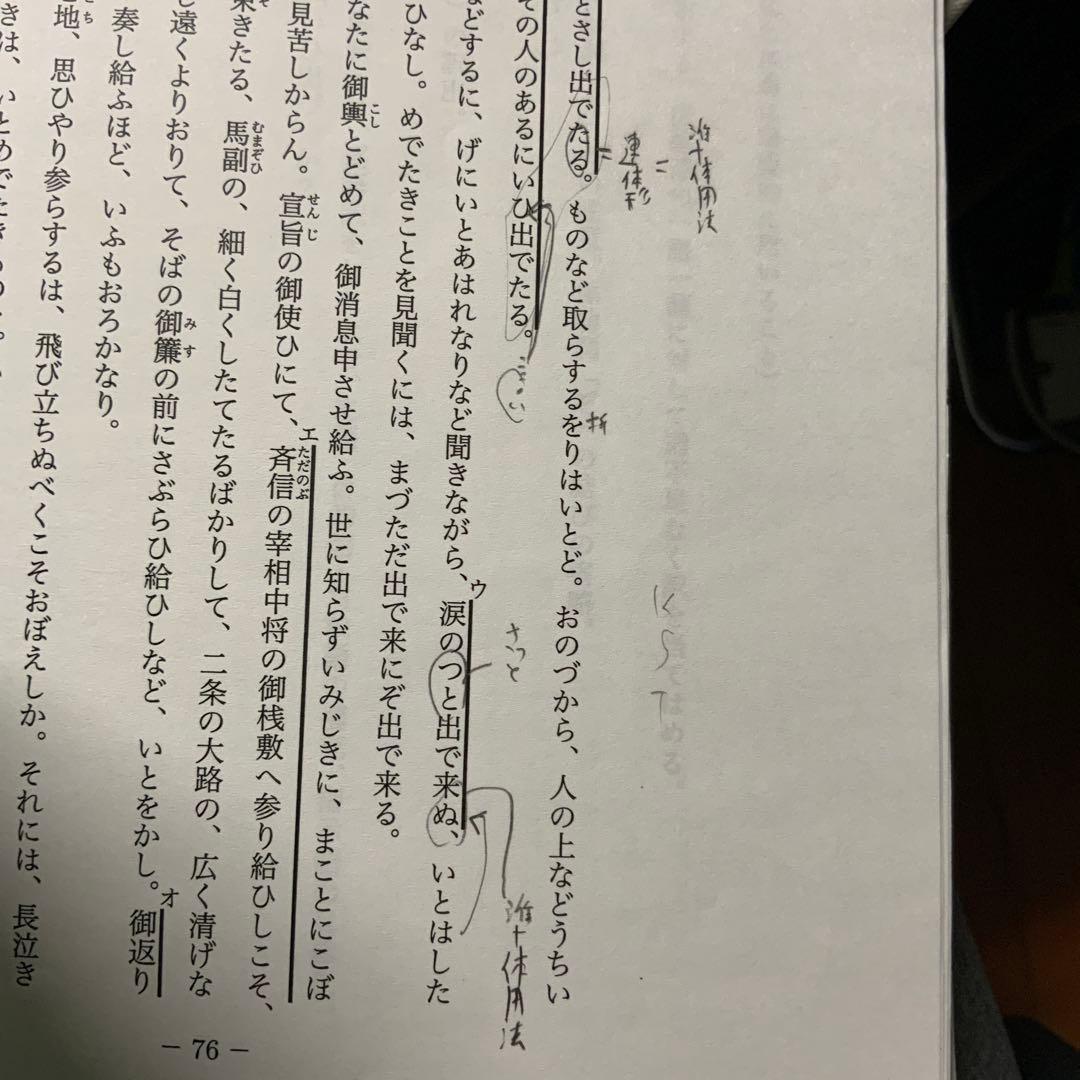 とさし出でたる。ものなど取らするをりはいとど。おのづから、人の上などうちい
その人のあるにいひ出でたる。
などするに、げにいとあはれなりなど聞きながら、涙のつと出で来ぬ、いとはした
ひなし。めでたきことを見聞くには、まづただ出で来にぞ出で来る。
なたに御輿とどめて、御消息申させ給ふ。世に知らずいみじきに、まことにこぼ
見苦しからん。宣旨の御使ひにて、斉信の宰相中将の御桟敷へ参り給ひしこそ、
来きたる、馬副の、細く白くしたてたるばかりして、二条の大路の、広く清げな
し遠くよりおりて、そばの御簾の前にさぶらひ給ひしなど、いとをかし。御返り
奏し給ふほど、いふもおろかなり。
地、思ひやり参らするは、飛び立ちぬべくこそおぼえしか。それには、長泣き
きは、いとめでたきもの
こし
せんじ
むまぞひ
みす
ただのぶ
ウ
エ
オ
連体形
準体用法
折
さっと
準体用法
― 76 ―